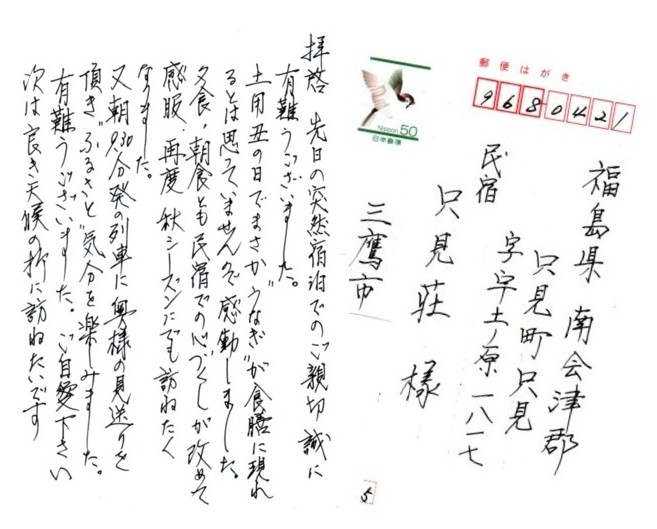 拝啓 先日の突然宿泊でのご親切誠に
有難うございました。
土用丑の日でまさか"うなぎ"が食膳に現れ
るとは思っていませんので感動しました。
夕食、朝食とも民宿での心づくしが改めて
感服.再度 秋シーズンにでも訪ねたく
なりました。
又朝9.30分発の列車に奥様の見送りを
頂き"ふるさと"気分を楽しみました。
有難うございました。ご自愛下さい
次は良き天候の折に訪ねたいです
郵便はがき
9680421
Nippon 50
日本郵便
福島県 南会津郡
只見町 只見
字宮ノ原一八一七
民宿
只見荘 様
三鷹市
5